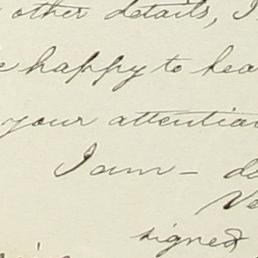 other details, I
happy to hea
your attention
I am - d
Ve
signed